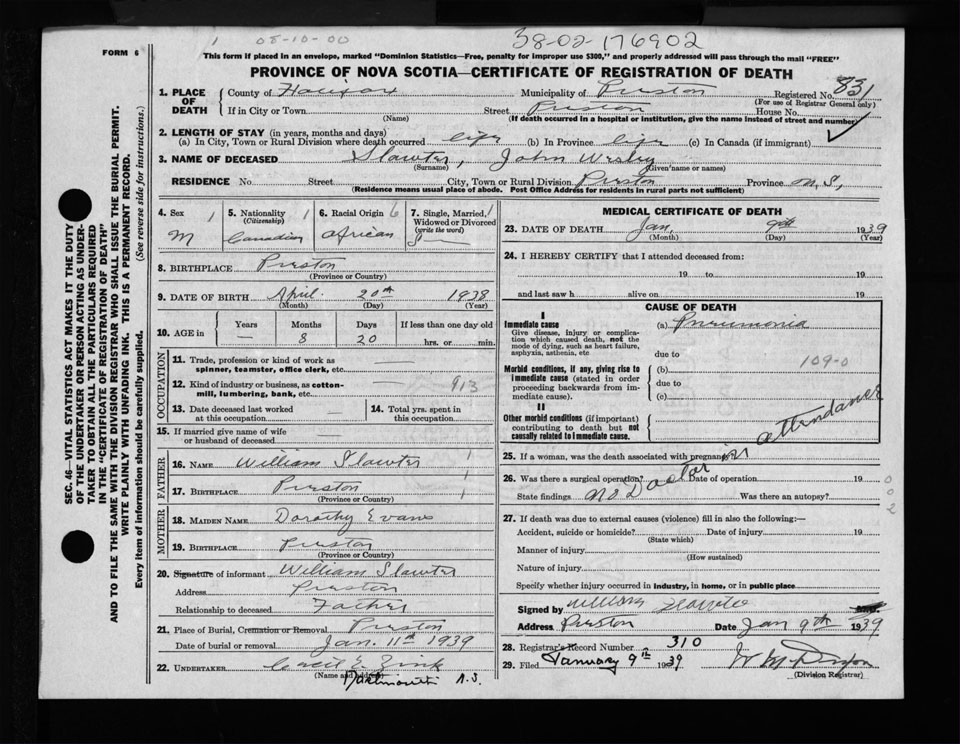 1 08-10-00
38-02-176902
FORM 6
This form if placed in an envelope, marked "Dominion Statistics—Free, penalty for improper use $300," and properly addressed will pass through the mail "FREE"
PROVINCE OF NOVA SCOTIA—CERTIFICATE OF REGISTRATION OF DEATH
SEC. 46—VITAL STATISTICS ACT MAKES IT THE DUTY
OF THE UNDERTAKER OR PERSON ACTING AS UNDER-
TAKER TO OBTAIN ALL THE PARTICULARS REQUIRED
IN THE "CERTIFICATE OF REGISTRATION OF DEATH"
AND TO FILE THE SAME WITH THE DIVISION REGISTRAR WHO SHALL ISSUE THE BURIAL PERMIT.
WRITE PLAINLY WITH UNFADING INK. THIS IS A PERMANENT RECORD.
Every item of information should be carefully supplied. (See reverse side for instructions.)
1. PLACE OF DEATH County of Halifax Municipality of Preston Registered No. 831
(For use of Registrar General only)
If in City or Town Street Preston House No.
(Name) (If death occurred in a hospital or institution, give the name instead of street and number)
2. LENGTH OF STAY (in years, months and days)
(a) In City, Town or Rural Division where death occurred life (b) In Province life (c) In Canada (if immigrant)
3. NAME OF DECEASED Slawter, John Wesley
(Surname) (Given name or names)
RESIDENCE No. Street City, Town or Rural Division Preston Province N.S,
(Residence means usual place of abode. Post Office Address for residents in rural parts not sufficient)
4. Sex 1 M
5. Nationality 1 (Citizenship) Canadian
6. Racial Origin 6 African
7. Single, Married, 1 Widowed or Divorced (write the word)
8. BIRTHPLACE Preston
(Province or Country)
9. DATE OF BIRTH April 20th 1938
(Month) (Day) (Year)
10. AGE in Years Months Days If less than one day old
— 8 20 hrs. or min.
OCCUPATION
11. Trade, profession or kind of work as
spinner, teamster, office clerk, etc. —
12. Kind of industry or business, as cotton-
mill, lumbering, bank, etc. — 913
13. Date deceased last worked
at this occupation —
14. Total yrs. spent in
this occupation —
15. If married give name of wife
or husband of deceased —
FATHER
16. NAME William Slawter 1
17. BIRTHPLACE Preston 1
(Province or Country)
MOTHER
18. MAIDEN NAME Dorothy Evans
19. BIRTHPLACE Preston
(Province or Country)
20. Signature of informant William Slawter
Address Preston
Relationship to deceased Father
21. Place of Burial, Cremation or Removal Preston
Date of burial or removal Jan. 11th 1939
22. UNDERTAKER Cecil E. Zink
(Name and address)
Dartmouth N.S.
MEDICAL CERTIFICATE OF DEATH
23. DATE OF DEATH Jan, 9th 1939
(Month) (Day) (Year)
24. I HEREBY CERTIFY that I attended deceased from:
19 to 19
and last saw h alive on 19
CAUSE OF DEATH
I
Immediate cause (a) Pneumonia
Give disease, injury or complica-
tion which caused death, not the
mode of dying, such as heart failure,
asphyxia, asthenia, etc due to
109-0
Morbid conditions, if any, giving rise to (b)
immediate cause (stated in order due to
proceeding backwards from im-
mediate cause). (c)
II
Other morbid conditions (if important)
contributing to death but not
causally related to immediate cause.
25. If a woman, was the death associated with pregnancy?
no Doctor in attendance
26. Was there a surgical operation? Date of operation 19
State findings Was there an autopsy?
002
27. If death was due to external causes (violence) fill in also the following:—
Accident, suicide or homicide? Date of injury 19
(State which)
Manner of injury
(How sustained)
Nature of injury
Specify whether injury occurred in industry, in home, or in public place
Signed by William Slawter
Address Preston Date Jan 9th 1939
28. Registrar's Record Number 310
29. Filed January 9th 1939
(Division Registrar)